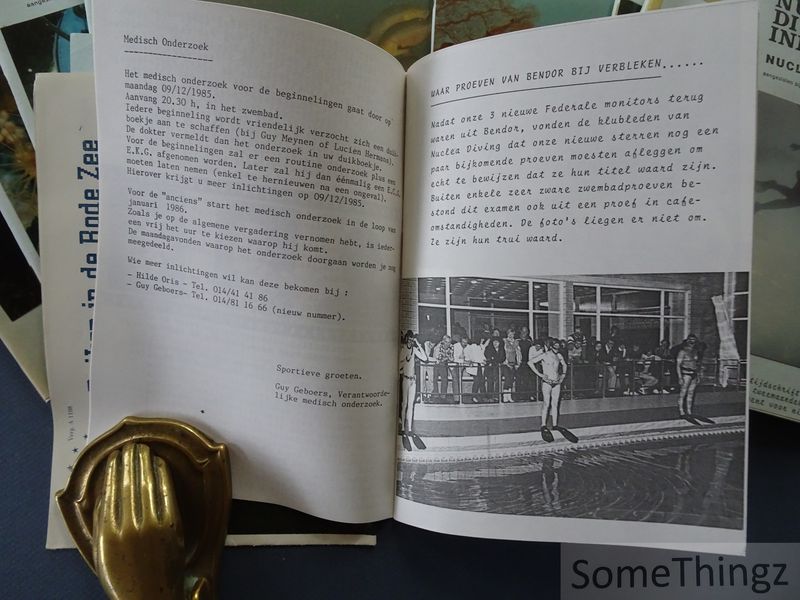 Medisch Onderzoek
Het medisch onderzoek voor de beginnelingen gaat door op
maandag 09/12/1985.
Aanvang 20.30 h, in het zwembad.
Iedere beginneling wordt vriendelijk verzocht zich een duik-
boekje aan te schaffen (bij Guy Meynen of Lucien Hermans).
De dokter vermeldt dan het onderzoek in uw duikboekje.
Voor de beginnelingen zal er een routine onderzoek plus een
E.K.G. afgenomen worden. Later zal hij dan éénmalig een E.C.G.
moeten laten nemen (enkel te hernieuwen na een ongeval).
Hierover krijgt u meer inlichtingen op 09/12/1985.
Voor de "anciens" start het medisch onderzoek in de loop van
januari 1986.
Zoals je op de algemene vergadering vernomen hebt, is ieder-
een vrij het uur te kiezen waarop hij komt.
De maandagavonden waarop het onderzoek doorgaan worden je nog
meegedeeld.
Wie meer inlichtingen wil kan deze bekomen bij :
- Hilde Oris - Tel. 014/41 41 86
- Guy Geboers- Tel. 014/81 16 66 (nieuw nummer).
Sportieve groeten.
Guy Geboers, Verantwoorde-
lijke medisch onderzoek.
WAAR PROEVEN VAN BENDOR BIJ VERBLEKEN......
Nadat onze 3 nieuwe Federale monitors terug
waren uit Bendor, vonden de klubleden van
Nuclea Diving dat onze nieuwe sterren nog een
paar bijkomende proeven moesten afleggen om
echt te bewijzen dat ze hun titel waard zijn.
Buiten enkele zeer zware zwembadproeven be-
stond dit examen ook uit een proef in cafe-
omstandigheden. De foto's liegen er niet om.
Ze zijn hun trui waard.
in de Rode Zee
Verg. A 1108
NUCL
SomeThingz